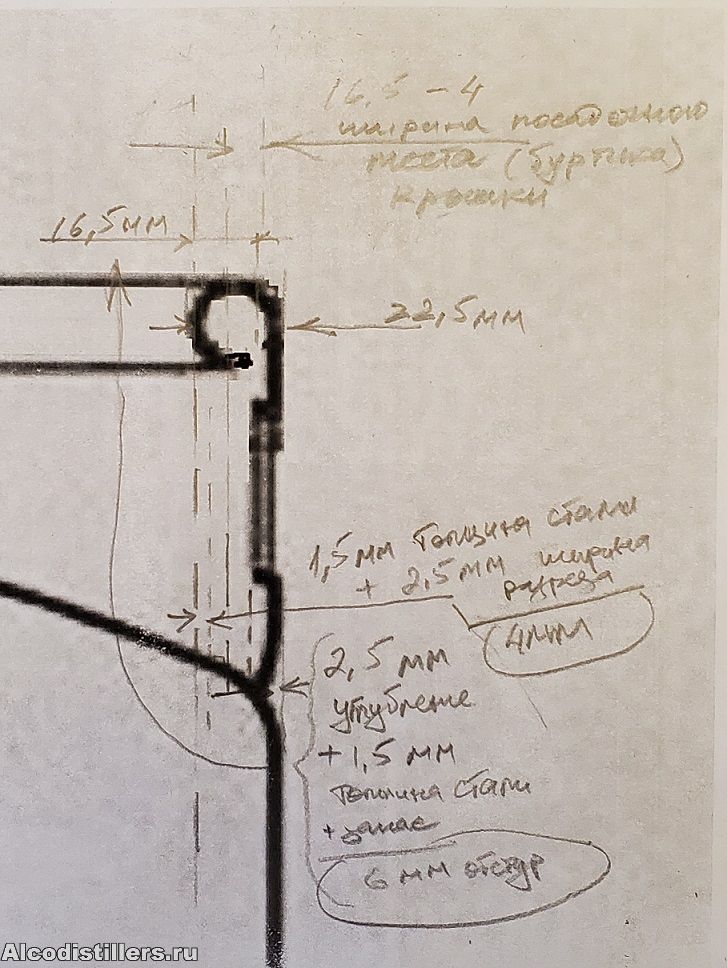 16,5 - 4
ширина посадочного
места (буртика)
крышки
16,5 мм
22,5 мм
1,5 мм толщина стали
+ 2,5 мм ширина
разреза
4 мм
2,5 мм
углубление
+ 1,5 мм
толщина стали
+ запас
6 мм отступ
Alcodistillers.ru